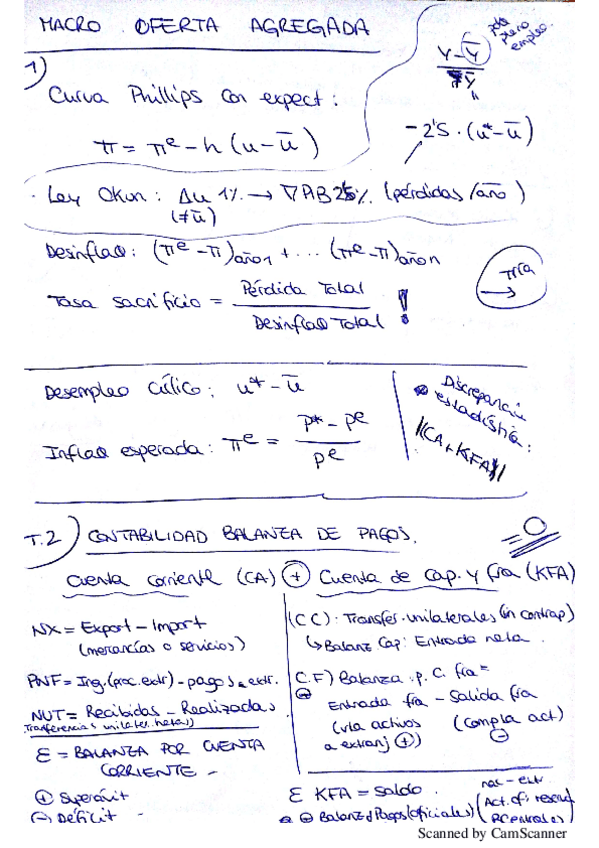 MACRO OFERTA AGREGADA
Y - Ȳ
Ȳ
pleno
empleo
1)
Curva Phillips con expect:
π = πe - h (u - ū)
-2'5 · (u* - ū)
· Ley Okun: Δu 1% → ∇PAB 2'5% (pérdidas/año)
(≠ū)
Desinflac: (πe - π)año 1 + ... (πe - π)año n
Tasa sacrificio = Pérdida Total
Desinflac Total !
Tría
→
Desempleo Cíclico: u* - ū
Inflac esperada: πe = P* - Pe
Pe
Discrepancia
estadística:
|(CA + KFA)|
T.2) CONTABILIDAD BALANZA DE PAGOS.
= O
Cuenta corriente (CA) + Cuenta de Cap. y fra (KFA)
NX = Export - Import
(mercancías o servicios)
PNF = Ing. (proc. extr) - pagos a extr.
NUT = Recibidas - Realizadas
Transferencias unilater. netas)
Σ = BALANZA POR CUENTA
CORRIENTE -
+ Superávit
(-) Déficit -
(CC): Transfer. unilaterales (sin contrap)
↳ Balanz Cap: Entrada neta.
C.F) Balanza p. C. fra =
-
Entrada fra - Salida fra
(vta activos (compra act)
a extranj +) -
Σ KFA = Saldo
nac - extr
Balanz d Pagos (oficiales) (Act. ofi reserv
BCentrales)
Scanned by CamScanner